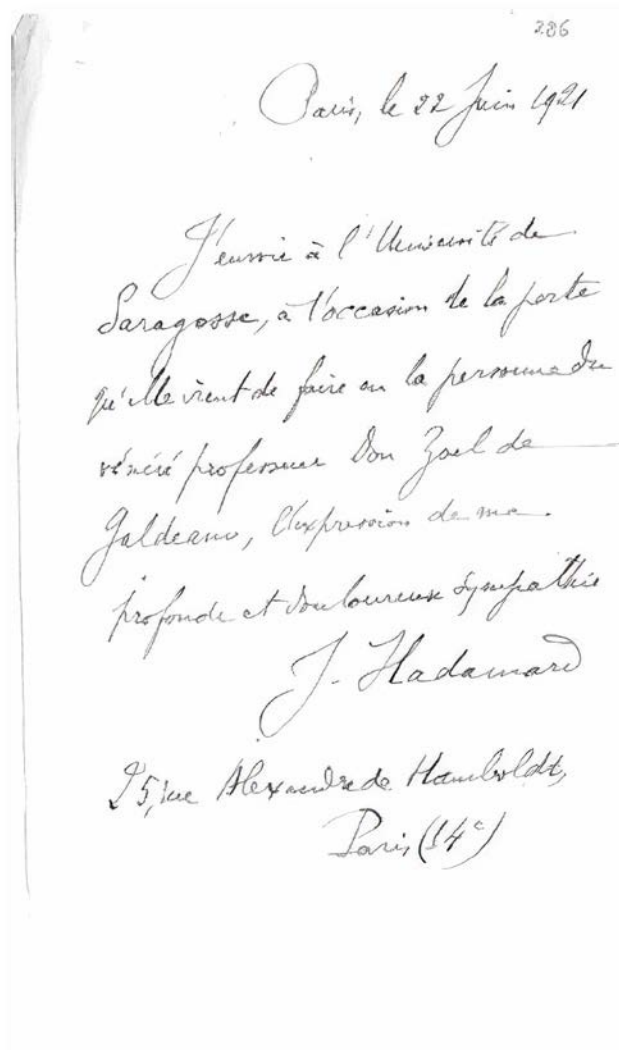 286
Paris, le 22 Juin 1921
J'envoie à l'Université de
Saragosse, à l'occasion de la perte
qu'elle vient de faire en la personne du
vénéré professeur Don Zoel de
Galdeano, l'expression de ma
profonde et douloureuse sympathie
J. Hadamard
25, rue Alexandre de Humboldt,
Paris (14e)